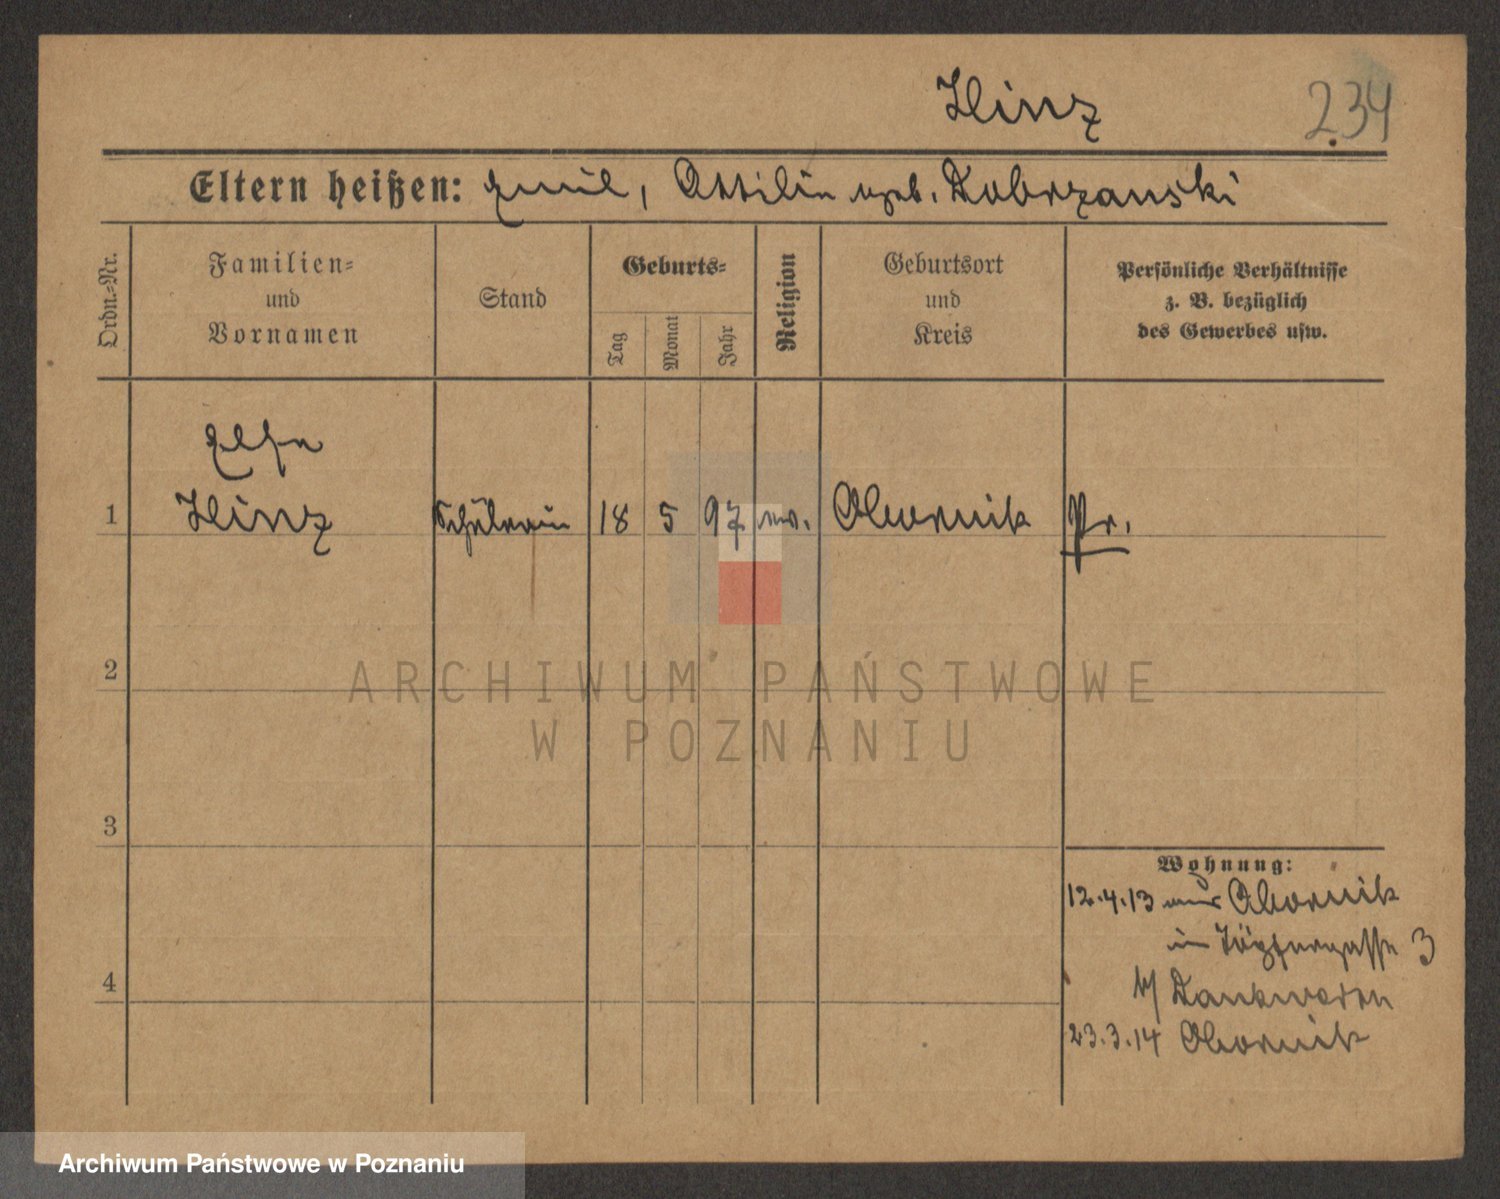 Hinz
234
Eltern heißen: Emil, Ottilie geb. Dobrzanski
Ordn.-Nr.
Familien-
und
Vornamen
Stand
Geburts-
Tag
Monat
Jahr
Religion
Geburtsort
und
Kreis
Persönliche Verhältnisse
z. B. bezüglich
des Gewerbes usw.
Else
1 Hinz Schülerin 18 5 97 ev. Obornik Pr.
2
ARCHIWUM PAŃSTWOWE
W POZNANIU
3
Wohnung:
12.4.13 aus Obornik
in Töpfergasse 3
b/
4
23.3.14 Obornik
Archiwum Państwowe w Poznaniu